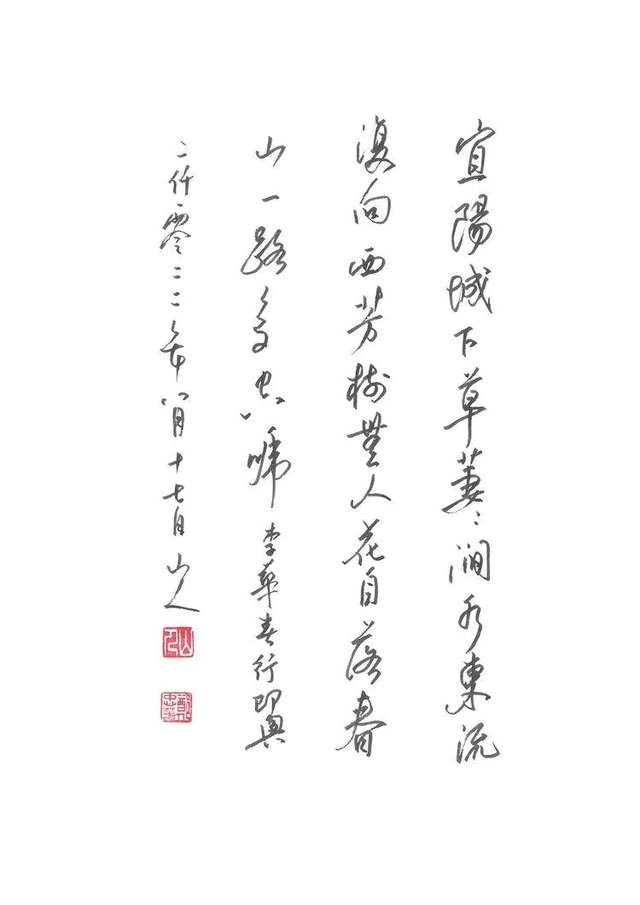 宜陽城下草萋〻澗水東流
復向西芳樹無人花自落春
山一路鳥空啼李華春行即興
二仟零二二年八月十七日山人
山人